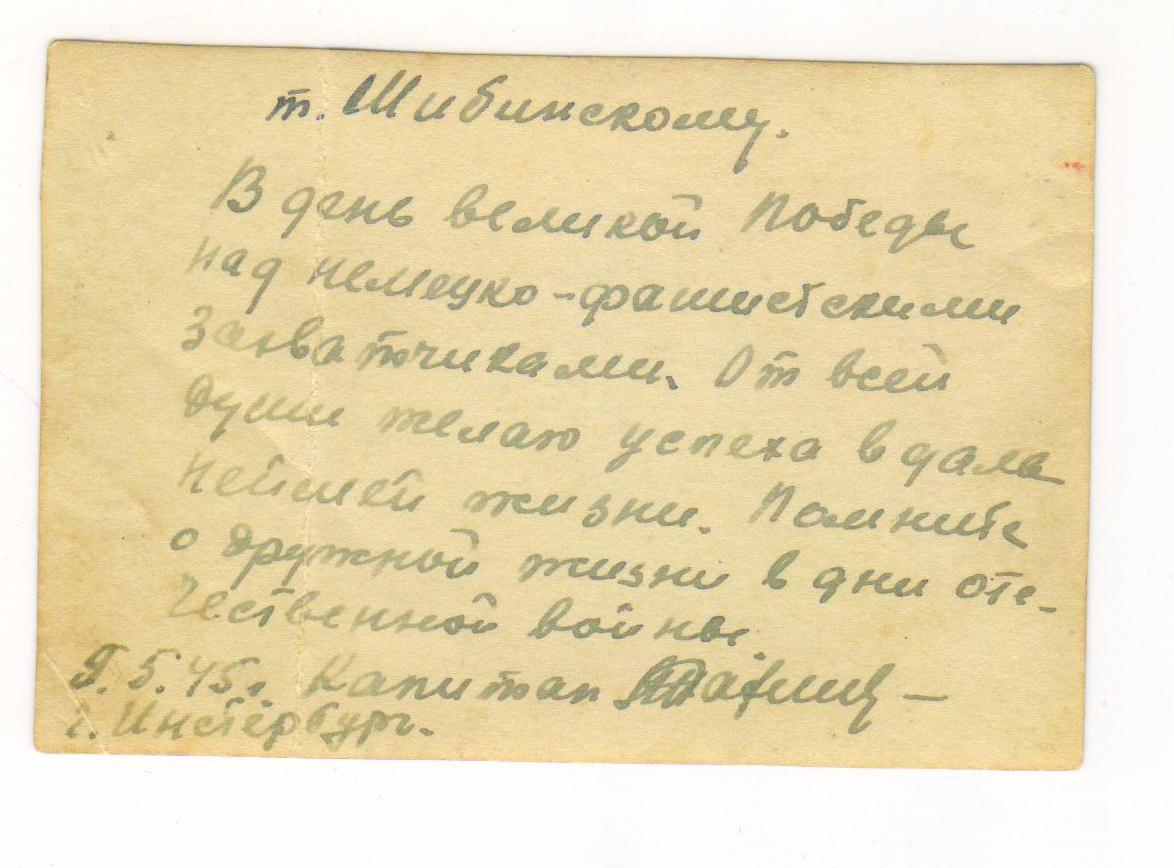 т. Шибинскому.
В день великой Победы
над немецко-фашистскими
захватчиками. От всей
души желаю успеха в даль
нейшей жизни. Помните
о дружной жизни в дни оте-
чественной войны.
9.5.45г. Капитан
г. Инстербург.